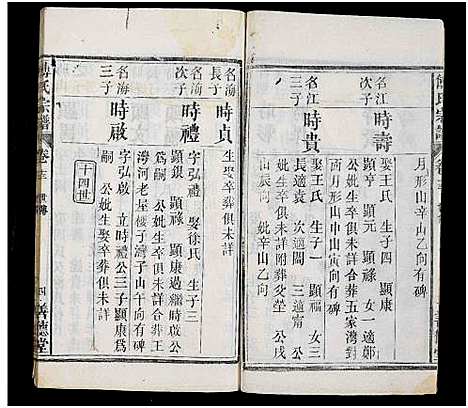 月形山辛山乙向有碑
名江
次子
時壽
娶王氏 生子四 顯康
顯亨 顯元 顯祿 女一適鄭
公妣生娶卒俱未詳合葬五家灣對
面月形山中山寅向有碑
名江
三子
時貴
娶王氏 生子一 顯福 女三
長適袁 次適閻 三適甯 公
妣生卒俱未詳附葬父塋 公戌
山辰向 妣辛山乙向
名海
長子
時貞
生娶卒葬俱未詳
名海
次子
時禮
字弘禮 娶徐氏 生子三
顯銀 顯祿 顯康過繼時啟公
爲嗣 公妣生卒俱未詳合葬王
灣河老屋樓子灣子山午向有碑
名海
三子
時啟
字弘啟 立時禮公三子顯康
嗣 公妣生娶卒葬俱未詳
十四世
傅氏宗譜
卷三 世傳
四 善德堂